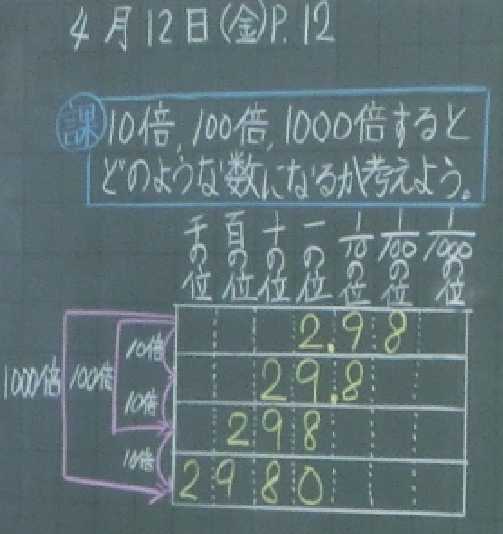 4月12日(金)P.12
課 10倍,100倍,1000倍すると
どのような数になるか考えよう。
千の位 百の位 十の位 一の位 1/10の位 1/100の位 1/1000の位
2.98
10倍
29.8
1000倍 100倍 10倍
298
10倍
2980